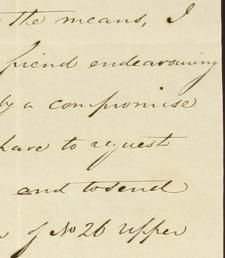 the means, I
friend endeavouring
by a compromise
have to request
and to send
of No 26 Upper